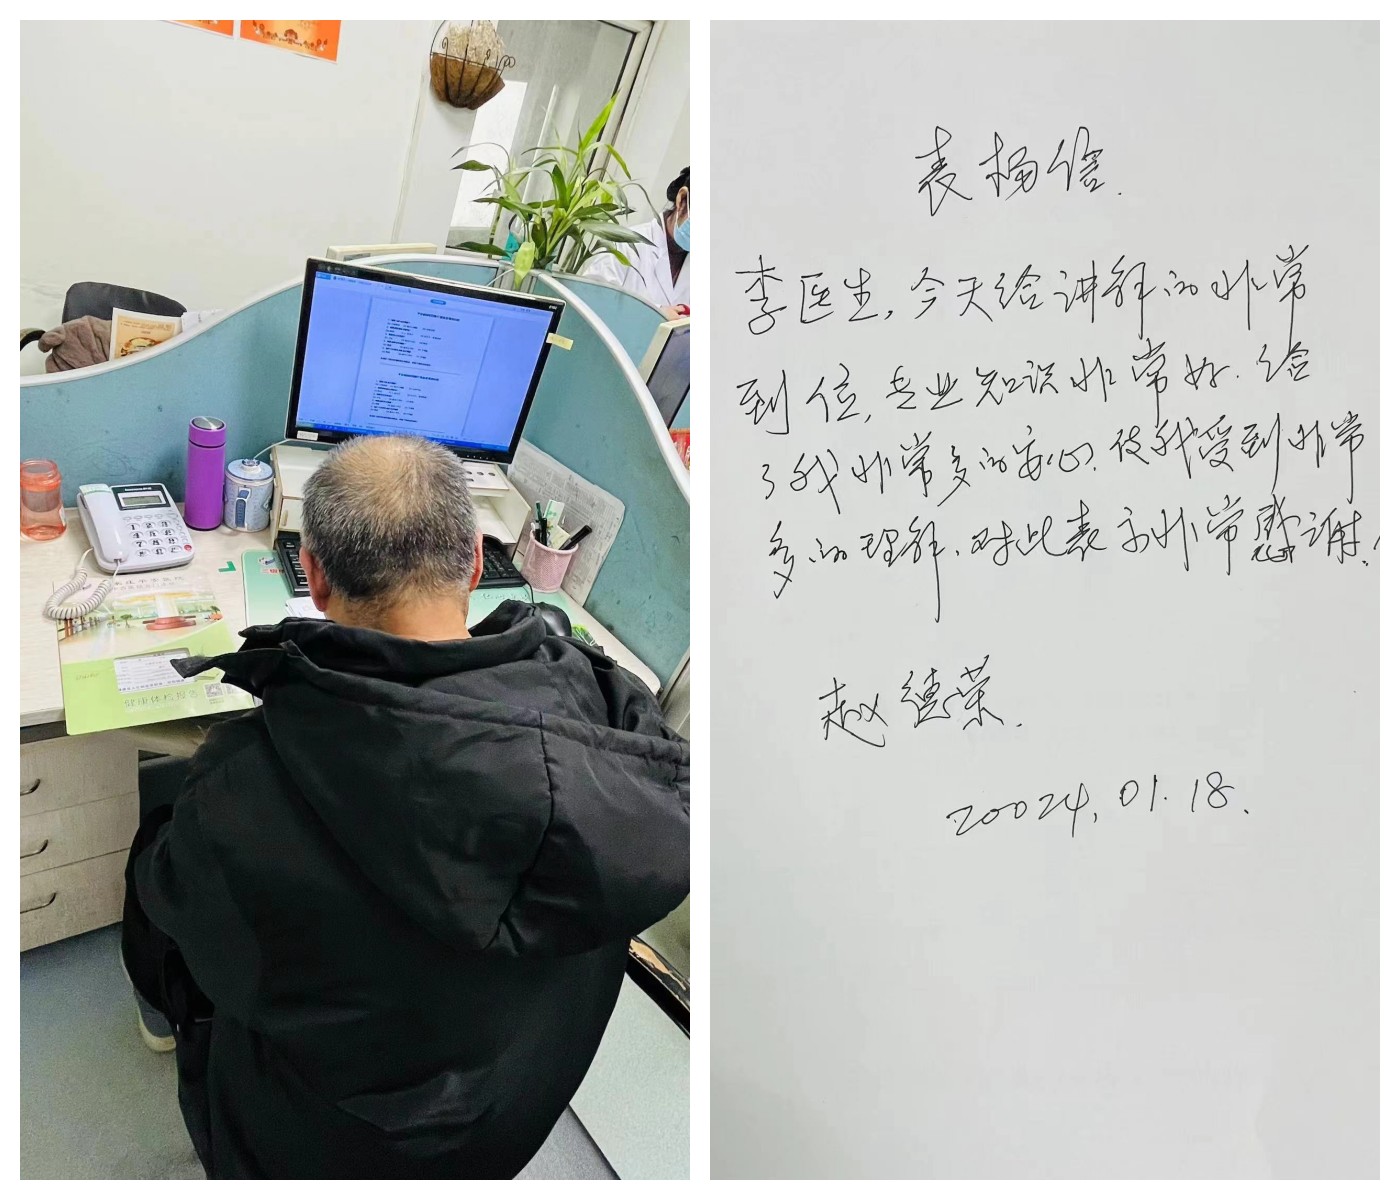 健康体检报告
表扬信.
李医生,今天给讲解的非常
到位,专业知识非常好.给
了我非常多的安心.使我受到非常
多的理解.对此表示非常感谢.
赵德荣.
20024.01.18.